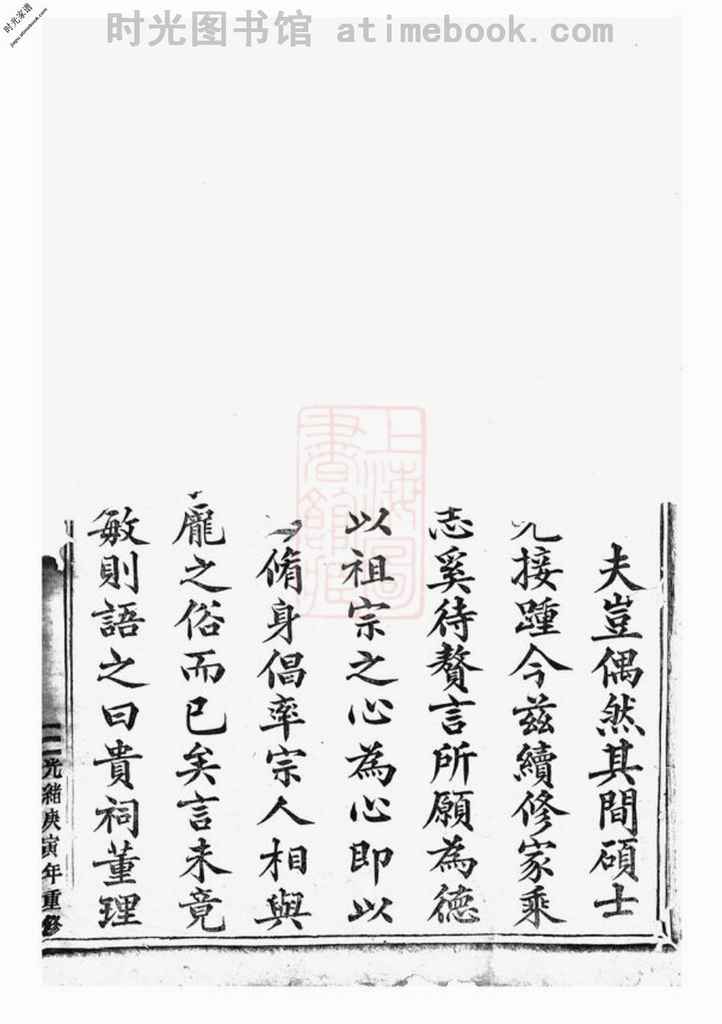 时光图书馆 atimebook.com
时光家谱
jiapu.atimebook.com
夫豈偶然其間碩士
接踵今茲續修家乘
志奚待贅言所願為德
以祖宗之心為心即以
脩身倡率宗人相與
龐之俗而已矣言未竟
敏則語之曰貴祠董理
光緒庚寅年重修
上海圖書館藏